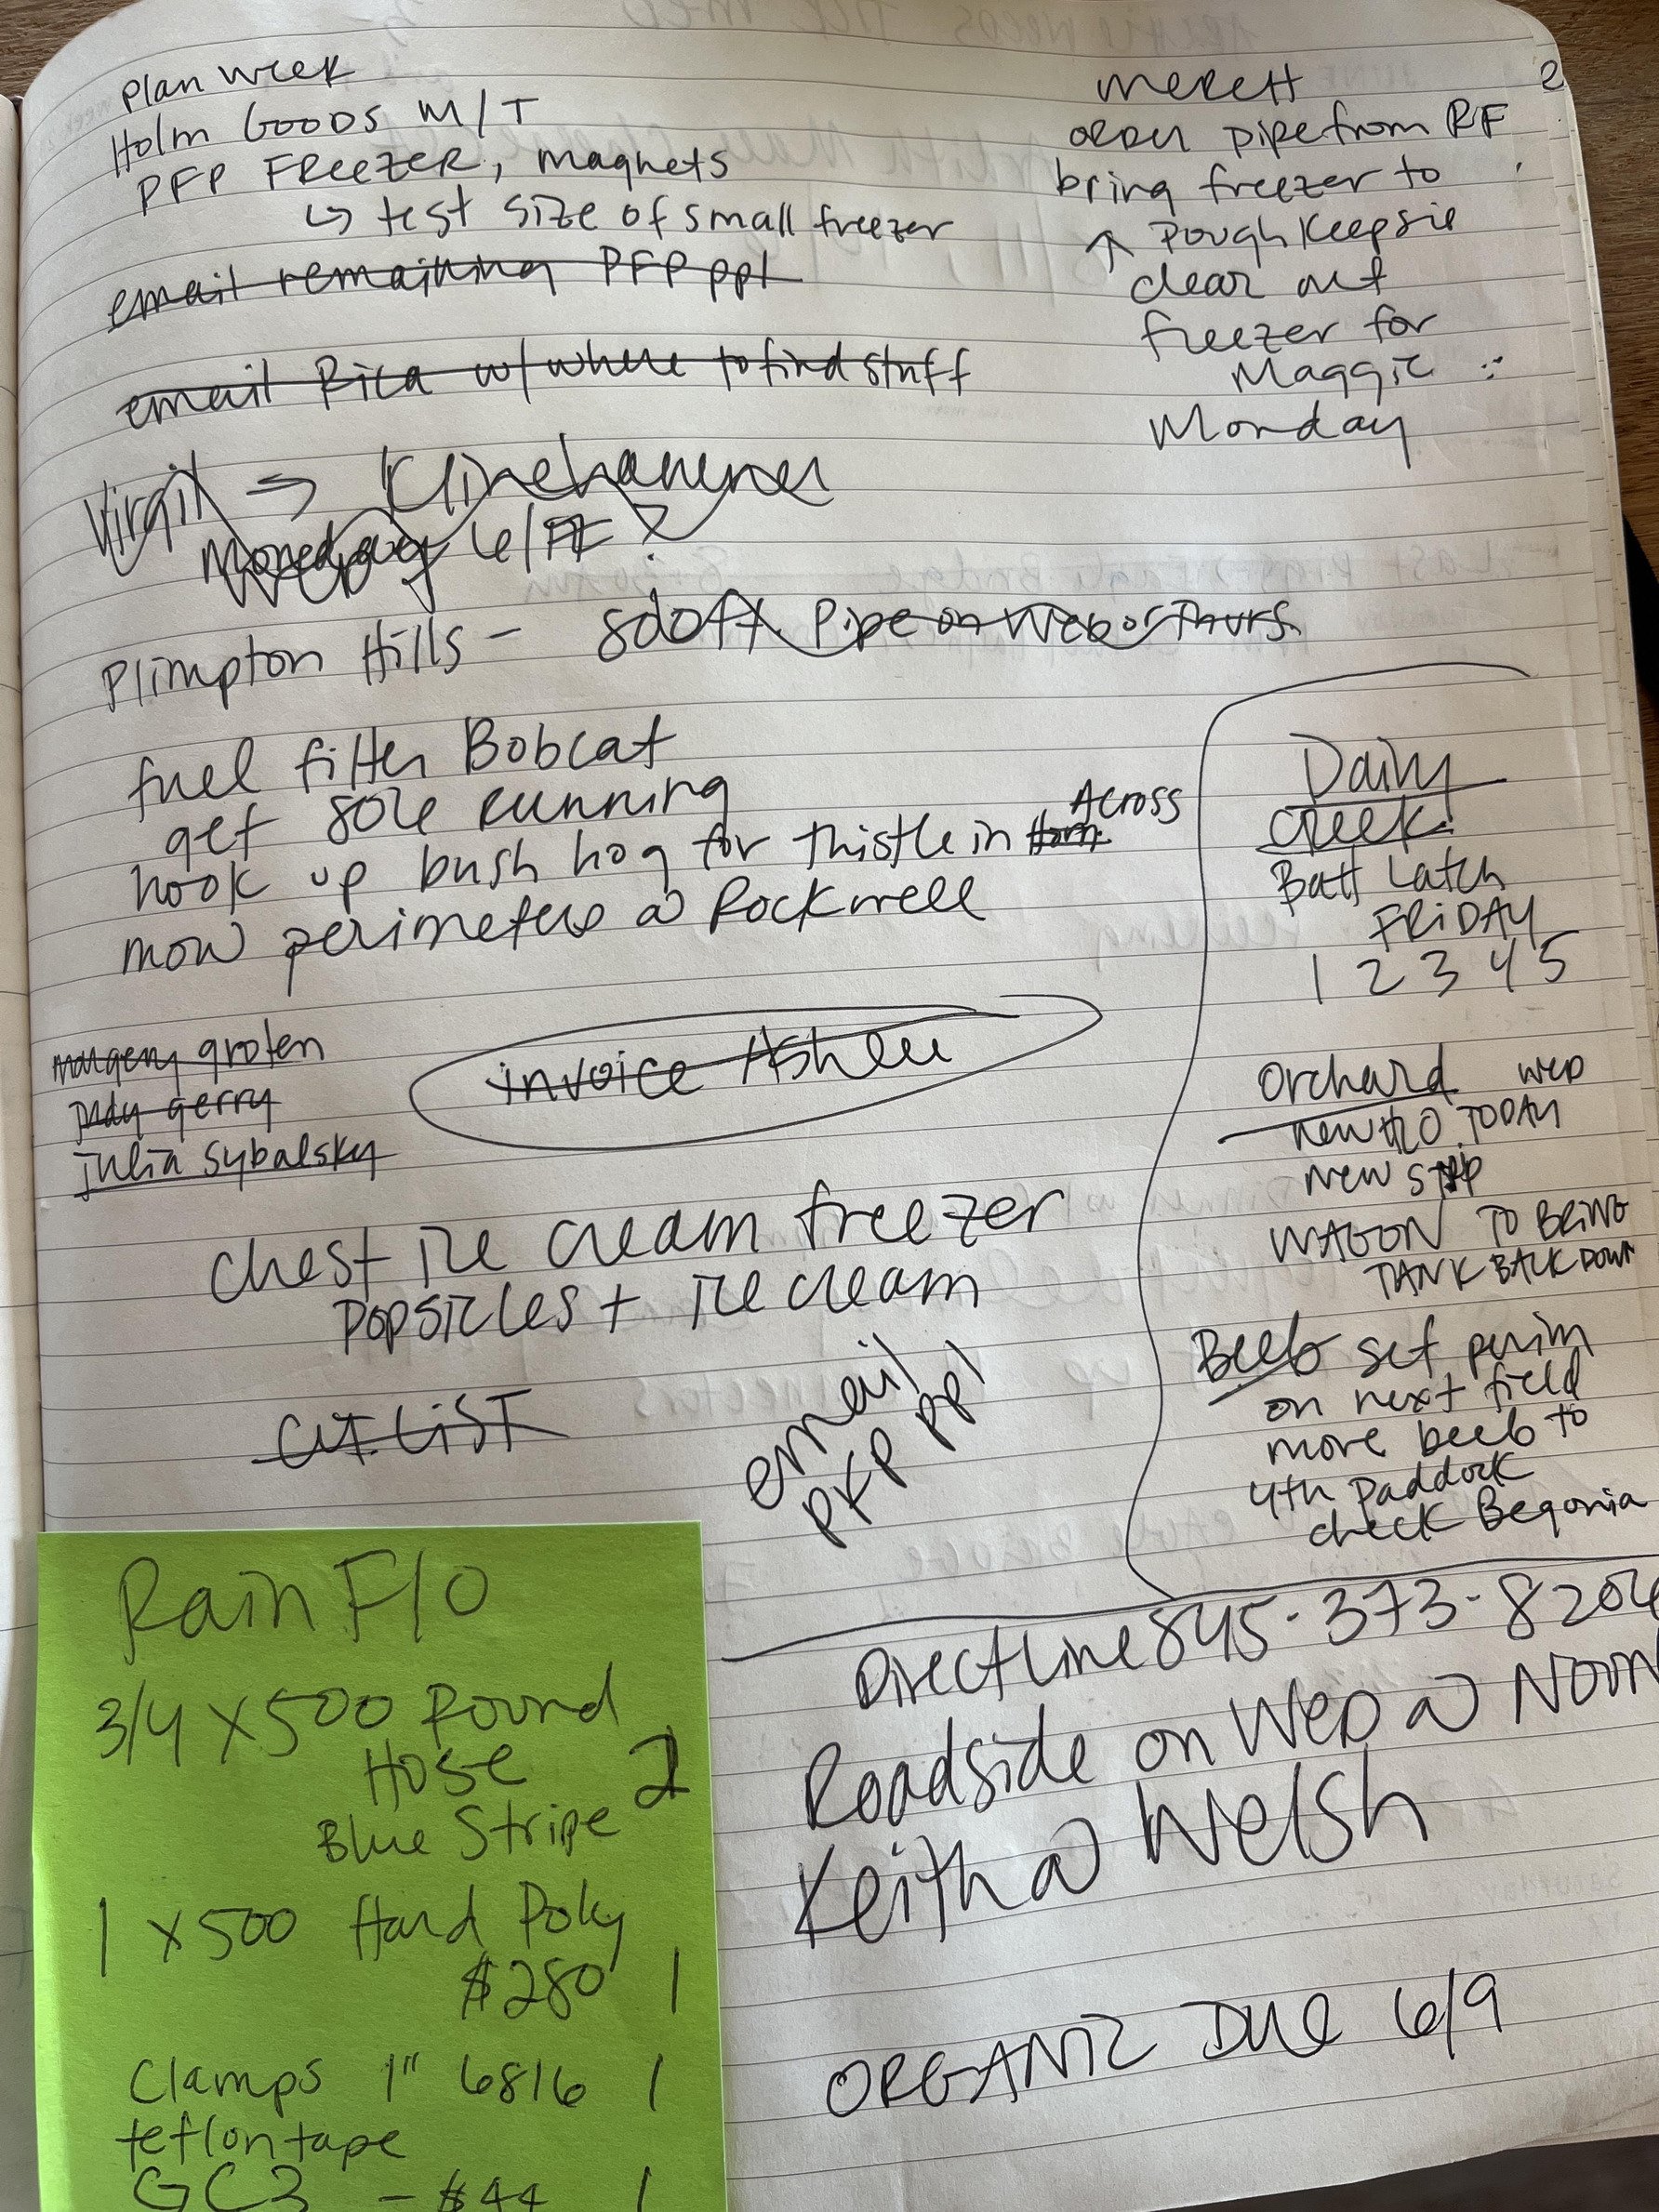 plan week
Holm Goods M/T
PFP FREEZER, magnets
↳ test size of small freezer
email remaining PFP ppl
email Rica w/ where to find stuff
Virgil →
6/ ?
Plimpton Hills - Pipe on Wed or Thurs.
merett
order pipe from RF
bring freezer to
↑ Poughkeepsie
clear out
freezer for
Maggie
Monday
2
fuel filter Bobcat
get running
hook up bush hog for thistle in Across
mow perimeters @ Rockwell
margery groten
judy gerry
julia sybalsky
invoice Ashlee
chest ice cream freezer
popsicles + ice cream
LIST
email
PFP ppl
Dairy
creek
Batt Latch
FRIDAY
1 2 3 4 5
Orchard WED
new H2O TODAY
new
WAGON TO BRING
TANK BACK DOWN
Beeb set perim
on next field
move beeb to
4th Paddock
check Begonia
Direct Line 845-373-8206
Roadside on WED @ NOON
Keith @ Welsh
ORGANIC DUE 6/9
Rain Flo
3/4 X 500 Round
Hose 2
Blue Stripe
1 X 500 Hard Poly
$280 1
Clamps 1" 6816 1
teflon tape
GC3 - $44 1